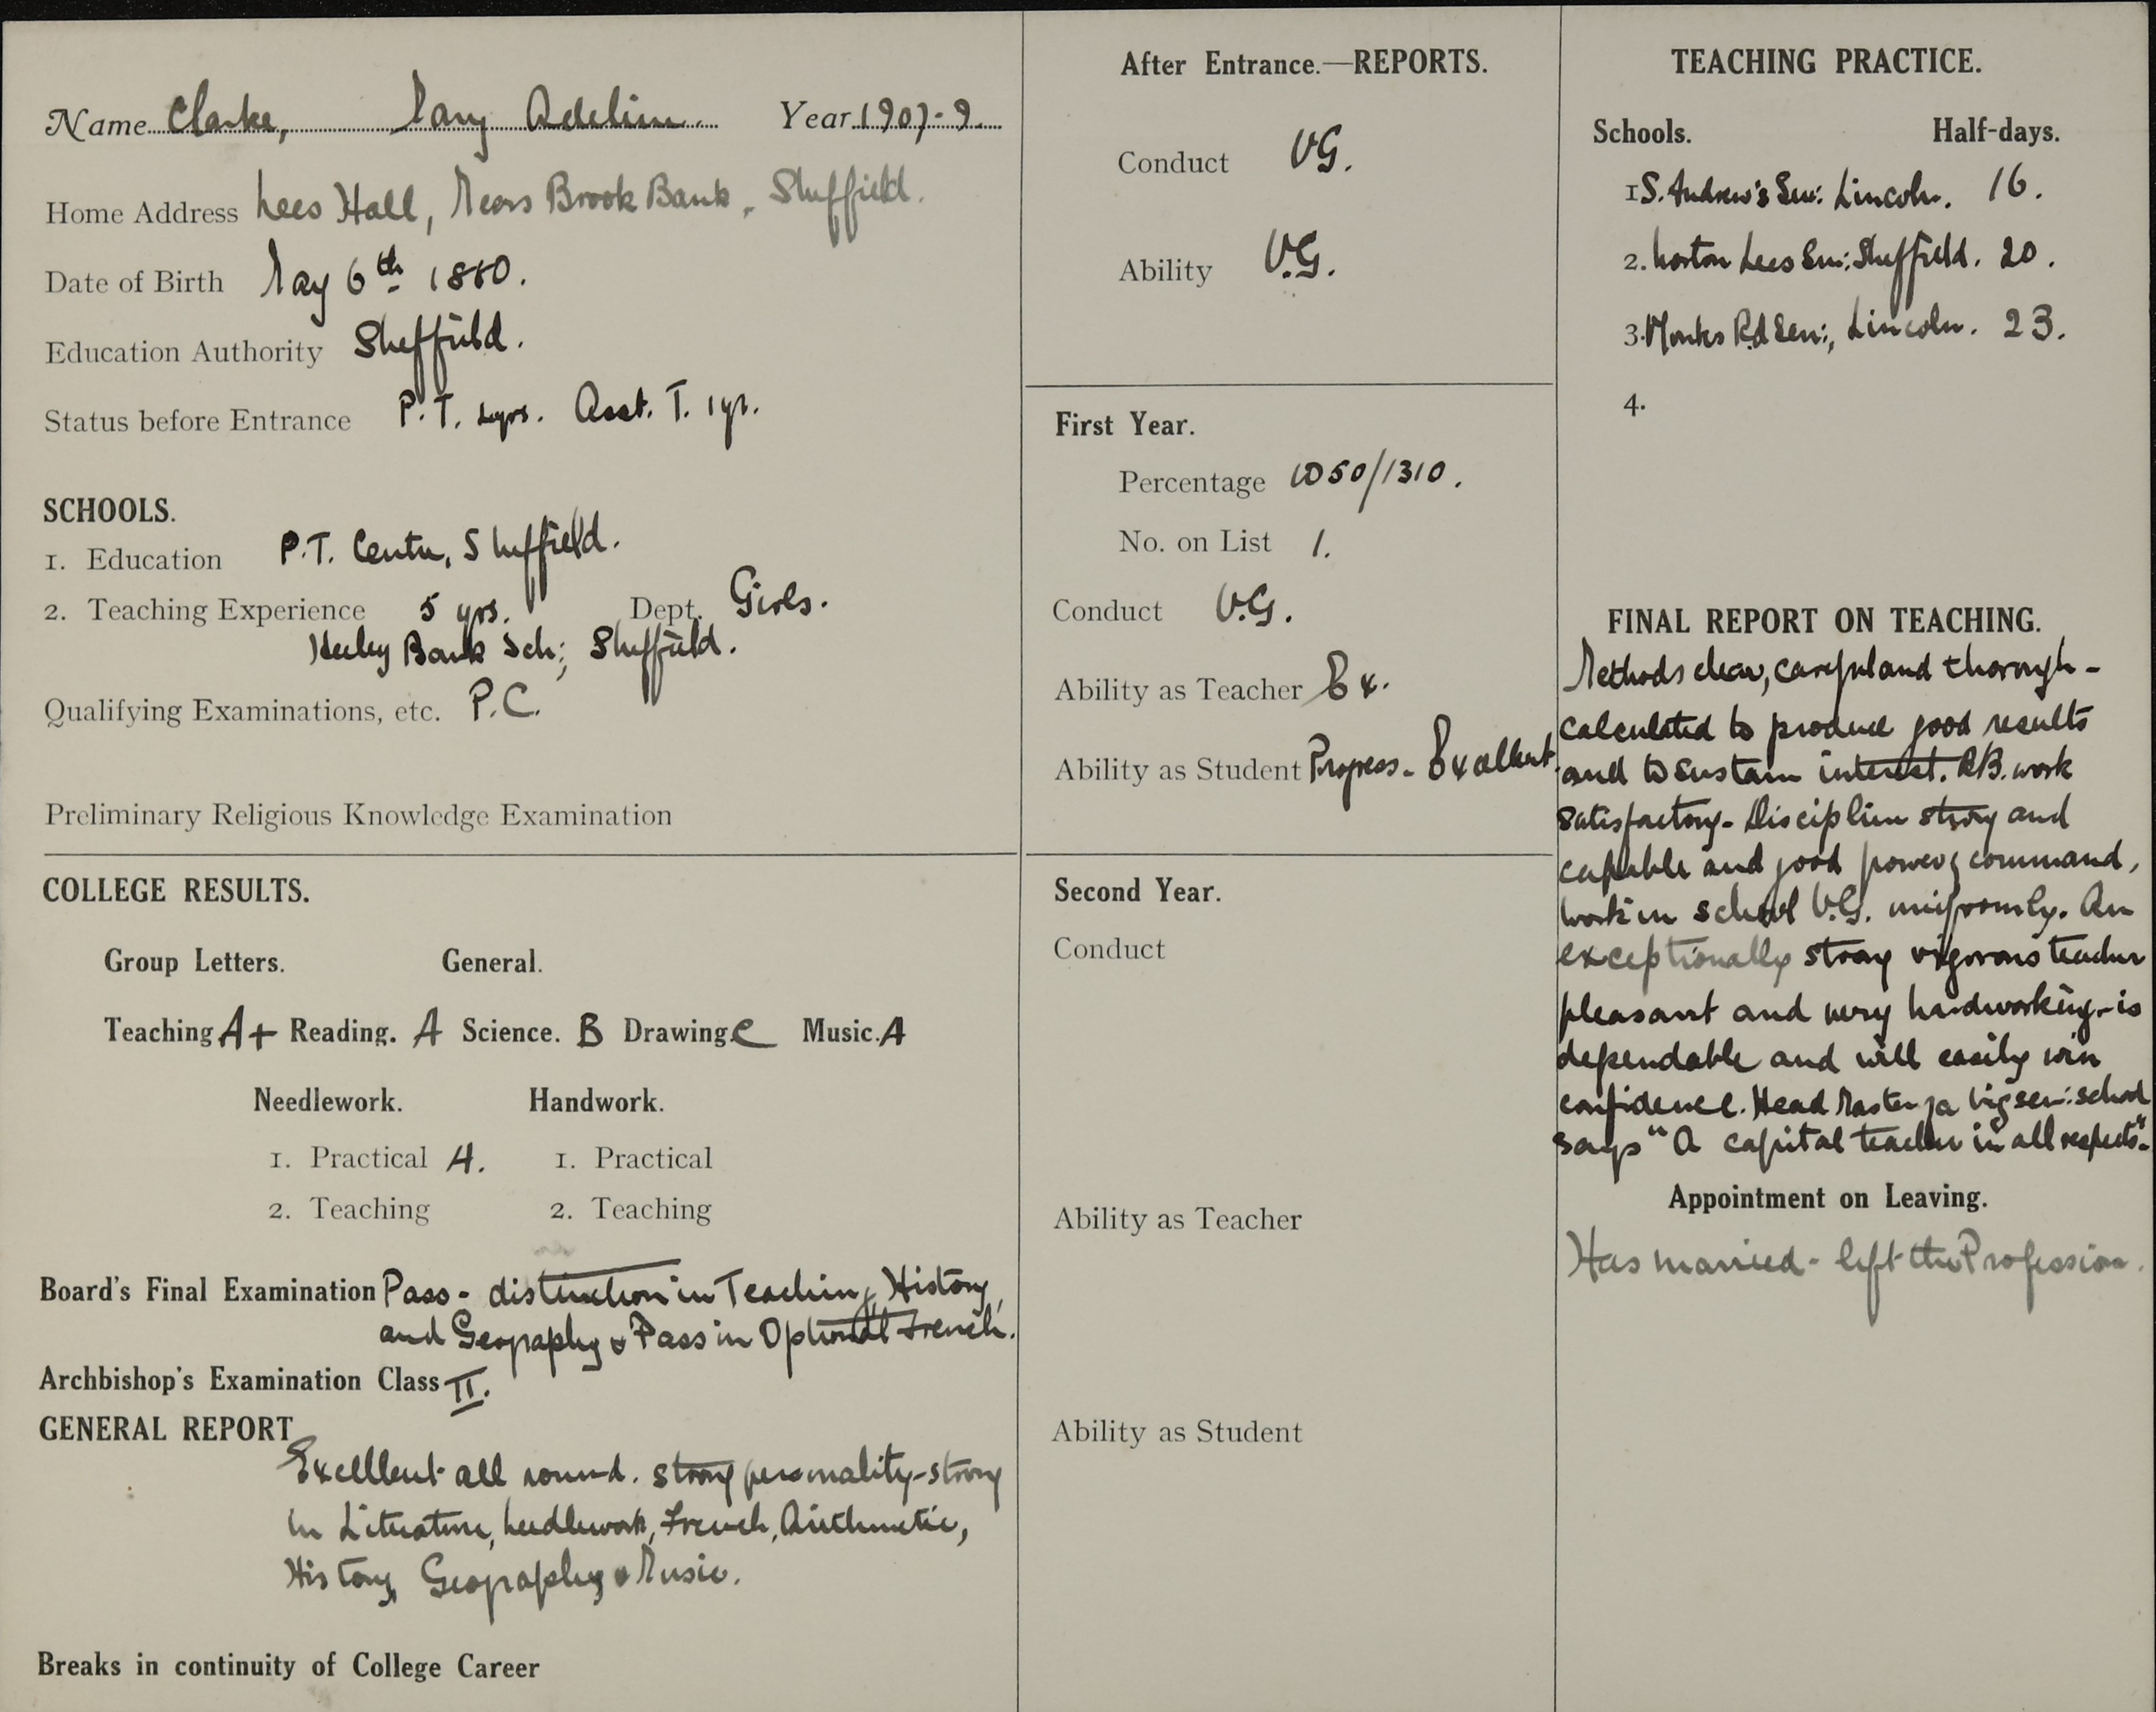 Name Clarke, Mary Adeline. Year 1907-9.
Home Address Lees Hall, Meers Brook Bank, Sheffield.
Date of Birth May 6th 1880.
Education Authority Sheffield.
Status before Entrance P.T. 2yrs. Asst. T. 1yr.
SCHOOLS.
1. Education P.T. Centre, Sheffield.
2. Teaching Experience 5 yrs. Dept. Girls.
Heeley Bank Sch; Sheffield.
Qualifying Examinations, etc. P.C.
Preliminary Religious Knowledge Examination
COLLEGE RESULTS.
Group Letters. General.
Teaching A+ Reading. A Science. B Drawing C Music. A
Needlework. Handwork.
1. Practical A. 1. Practical
2. Teaching 2. Teaching
Board's Final Examination Pass - distinction in Teaching, History,
and Geography & Pass in Optional French.
Archbishop's Examination Class II.
GENERAL REPORT
Excellent all round. strong personality - strong
in Literature, Needlework, French, Arithmetic,
History, Geography & Music.
Breaks in continuity of College Career
After Entrance.—REPORTS.
Conduct VG.
Ability V.G.
First Year.
Percentage 1050/1310.
No. on List 1.
Conduct V.G.
Ability as Teacher Ex.
Ability as Student Progress - Excellent.
Second Year.
Conduct
Ability as Teacher
Ability as Student
TEACHING PRACTICE.
Schools. Half-days.
1 S. Andrew's Sen: Lincoln. 16.
2. Norton Lees Sen: Sheffield. 20.
3. Monks Rd Sen:, Lincoln. 23.
4.
FINAL REPORT ON TEACHING.
Methods clear, careful and thorough -
calculated to produce good results
and to sustain interest. BB. work
satisfactory - Discipline strong and
capable and good power of command,
work in school V.G. uniformly. An
exceptionally strong vigorous teacher
pleasant and very hardworking - is
dependable and will easily win
confidence. Head Master of a big sen: school
says "A capital teacher in all respects".
Appointment on Leaving.
Has married - left the Profession.